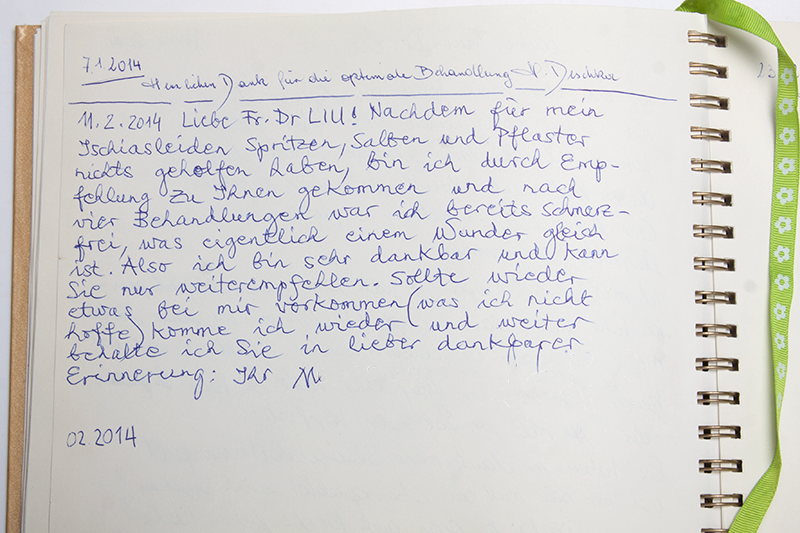 7.1.2014
Herzlichen Dank für die optimale Behandlung
11.2.2014 Liebe Fr. Dr LIU! Nachdem für mein
Ischiasleiden Spritzen, Salben und Pflaster
nichts geholfen haben, bin ich durch Emp-
fehlung zu Ihnen gekommen und nach
vier Behandlungen war ich bereits Schmerz-
frei, was eigentlich einem Wunder gleich
ist. Also ich bin sehr dankbar und kann
Sie nur weiterempfehlen. Sollte wieder
etwas bei mir vorkommen (was ich nicht
hoffe) komme ich wieder und weiter
behalte ich Sie in lieber dankbarer
Erinnerung: Ihr M.
02.2014